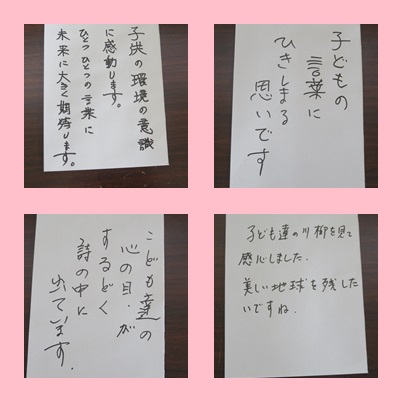 子供の環境の意識
に感動します。
ひとつひとつの言葉に
未来に大きく期待します。
子どもの
言葉に
ひきしまる
思いです
こども達の
心の目が
するどく
詩の中に
出ています.
子ども達の川柳を見て
感心しました.
美しい地球を残した
いですね.